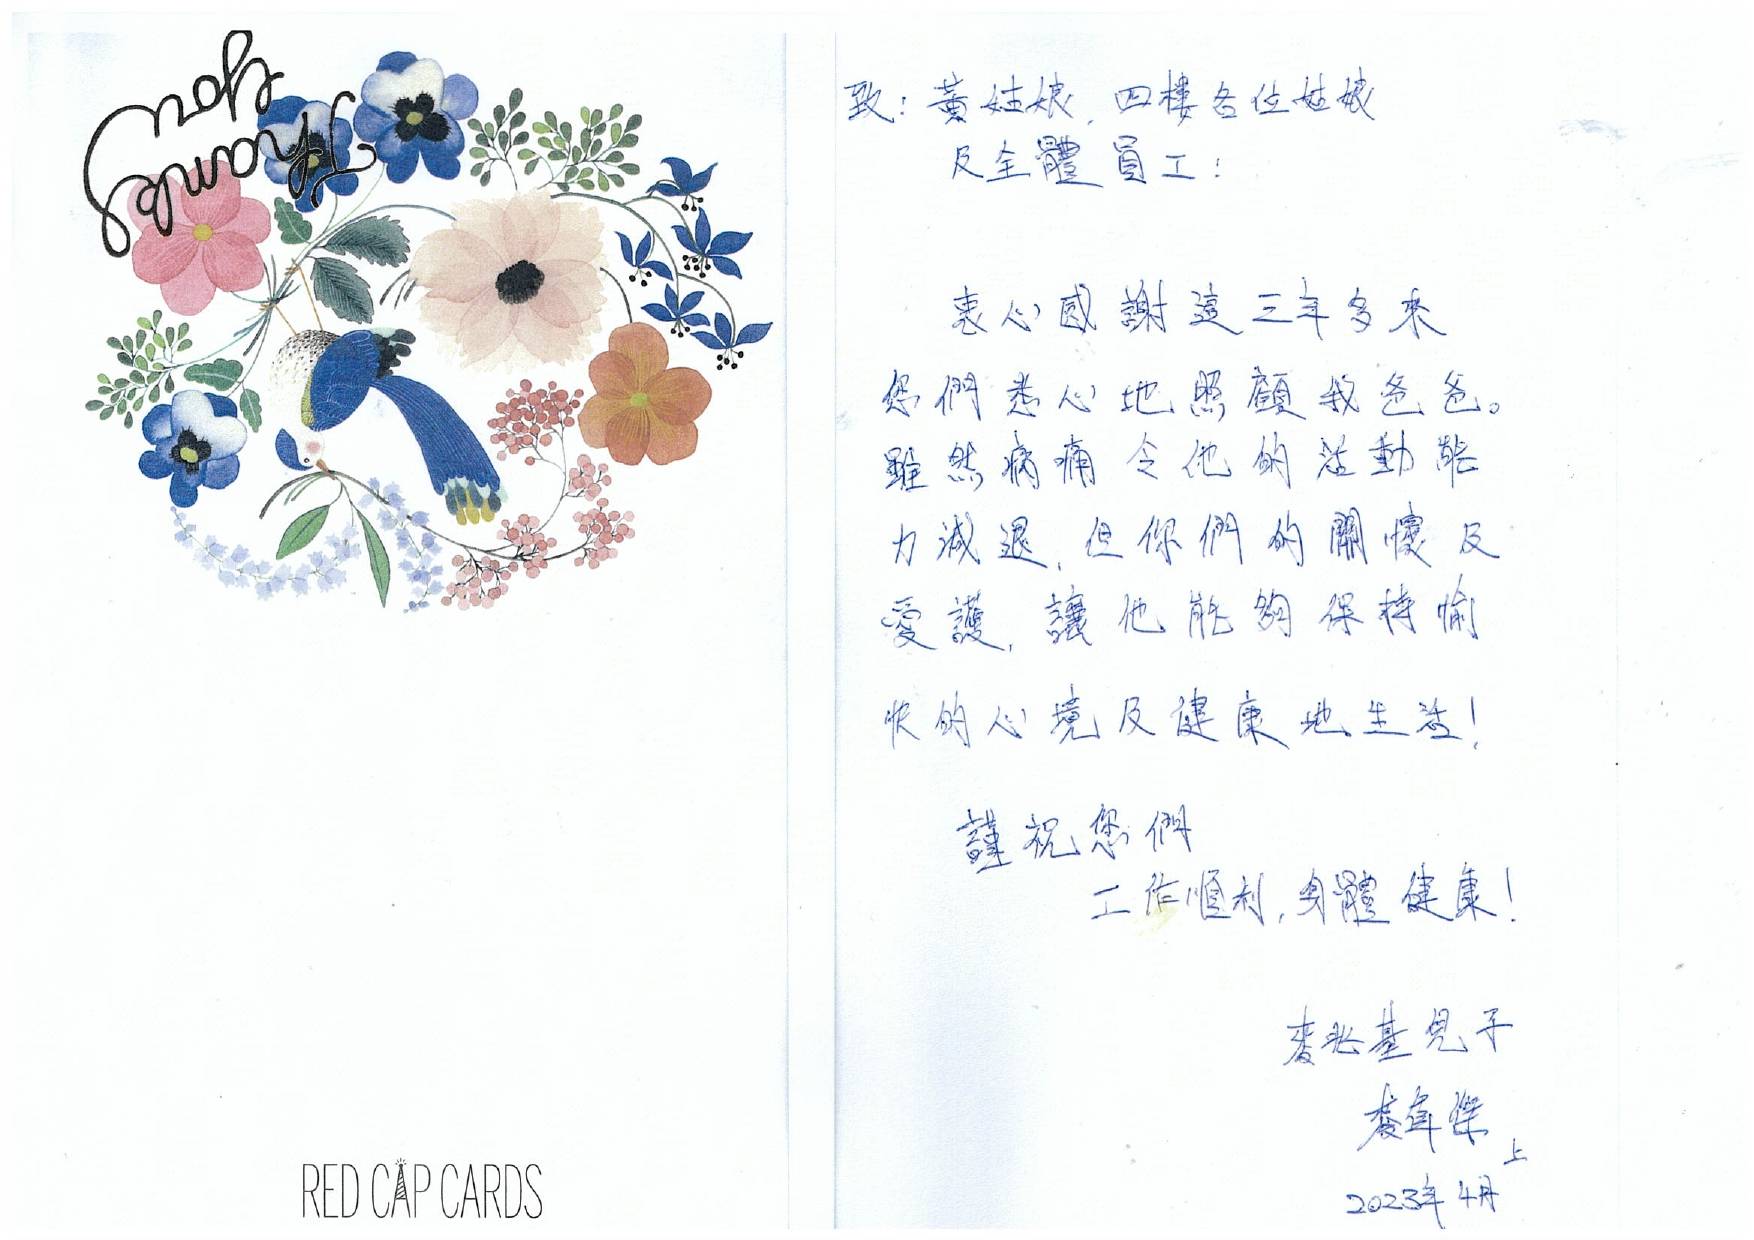 Thank
you
RED CAP CARDS
致：黃姑娘，四樓各位姑娘
及全體員工：
衷心感謝這三年多來
您們悉心地照顧我爸爸。
雖然病痛令他的活動能
力減退，但你們的關懷及
愛護，讓他能夠保持愉
快的心境及健康地生活！
謹祝您們
工作順利，身體健康！
麥兆基兒子
麥偉傑
上
2023年4月